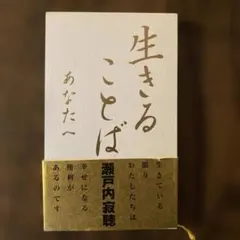 生きる
ことば
あなたへ
瀬戸内寂聴
生きている
限り
わたしたちは
幸せになる
権利が
あるのです